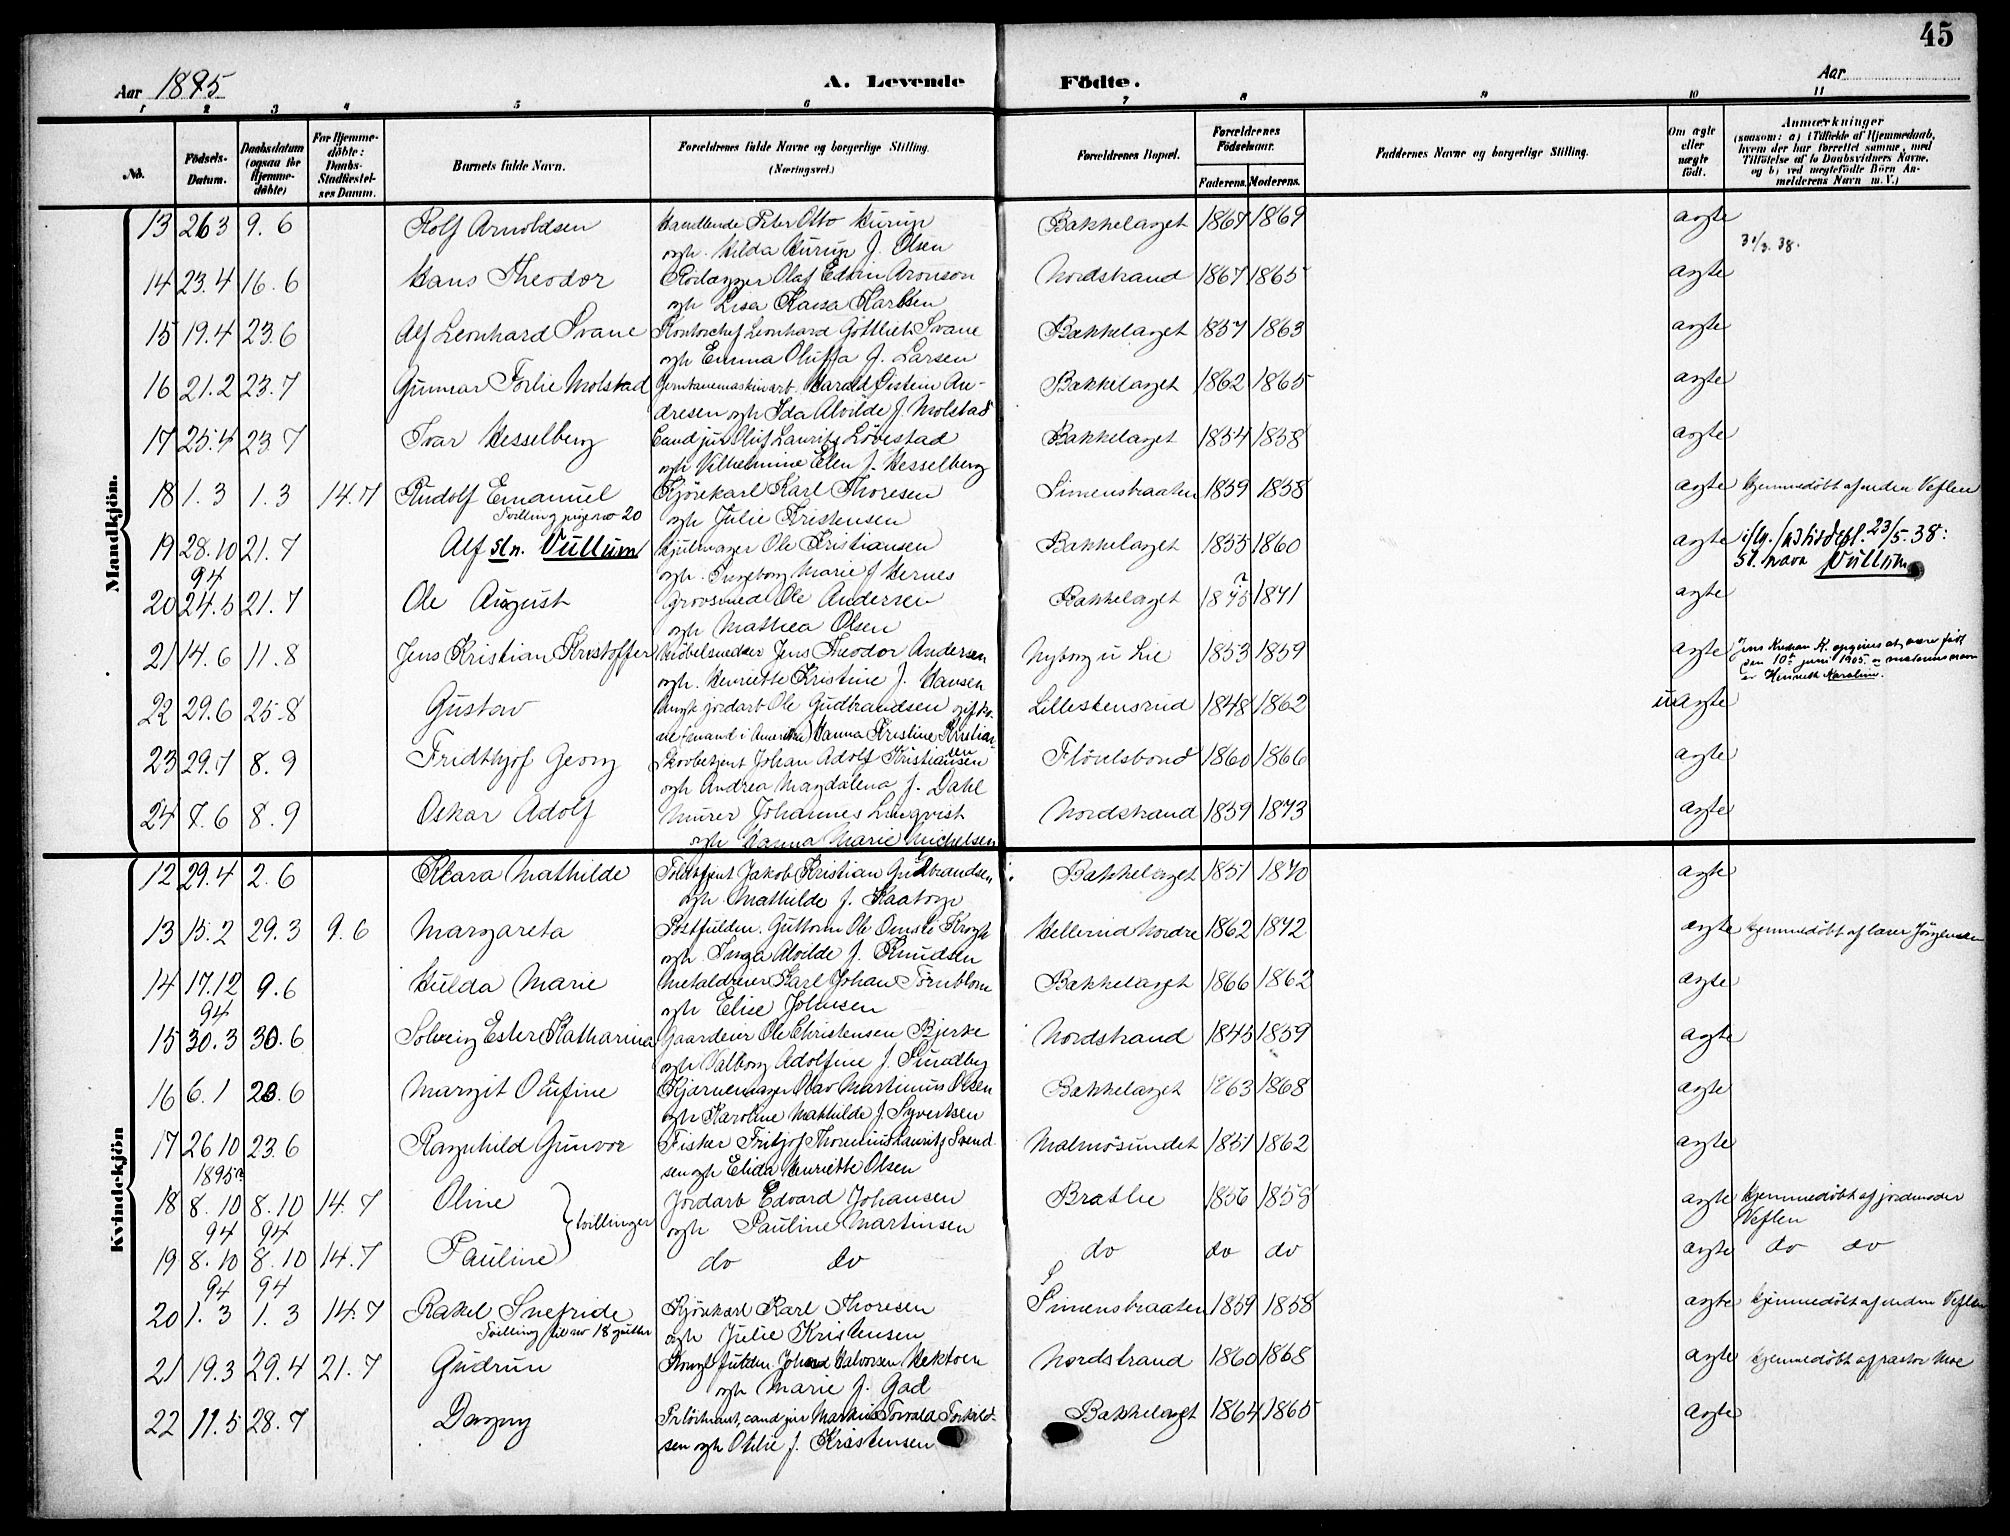 45
Aar 1895 A. Levende Födte. Aar
1 2 3 4 5 6 7 8 9 10 11
No. Födsels-Datum. Daabsdatum (ogsaa for Hjemmedöbte) For Hjemmedöbte: Daabs-Stadfæstelses Datum. Barnets fulde Navn. Forældrenes fulde Navne og borgerlige Stilling. (Næringsvei.) Forældrenes Bopæl. Forældrenes Födselsaar. Faderens. Moderens. Faddernes Navne og borgerlige Stilling. Om ægte eller uægte födt. Anmærkninger (saasom: a) i Tilfælde af Hjemmedaab, hvem der har forrettet samme, med Tilföielse af to Daabsvidners Navne, og b) ved uægtefödte Börn Anmelderens Navn m. V.)
Mandkjön.
13 26 3 9. 6 Rolf Arnoldsen Handlende Peter Otto Hurup Bakkelaget 1867 1869 ægte
ogh. Hilda Hurup f. Olsen 31/3. 38.
14 23.4 16.6 Hans Theodor Rodlægger Olaf Edvin Aronson Nordstrand 1867 1865 ægte
ogh Lisa Kaisa Karlsen
15 19.4 23.6 Alf Leonhard Svane Kontorchef Leonhard Gottlieb Svane Bækkelaget 1857 1863 ægte
ogh Emma Oluffa f. Larsen
16 21.2 23.7 Gunnar Torlie Molstad Jernbanemaskinarb. Harald Øistein An- Bækkelaget 1862 1865 ægte
dresen ogh Ida Alvilde f. Molstad
17 25.4 23 7 Ivar Hesselberg Cand jur Oluf Lauritz Lövestad Bakkelaget 1854 1858 ægte
ogh Vilhelmine Elen f. Hesselberg
18 1.3 1.3 14.7 Rudolf Emanuel Kjörekarl Karl Thoresen Simensbraaten 1859 1858 ægte hjemmedöbt af jordm Veflen
Tvilling pige no 20 ogh Julie Kristensen
19 28.10 21.7 Alf sln. Vullum Hjulmager Ole Kristiansen Bakkelaget 1855 1860 ægte iflg. Justisdept. 23/5.38:
94 ogh. Ingeborg Marie f Hernes sl. navn Vullum
20 24.5 21.7 Ole August Grovsmed Ole Andersen Bakkelaget 1875 ? 1871 ægte
ogh Mathea Olsen
21 14.6 11.8 Jens Kristian Kristoffer Möbelsnedker Jens Theodor Andersen Nyborg u Lie 1853 1859 ægte Jens Kristian K. opgives at være født
ogh. Henriette Kristine f. Hansen den 10de juni 1905
er Henriette Karoline.
22 29.6 25.8 Gustav Ungk jordarb Ole Gudbrandsen og gift ko- Lillestensrud 1848 1862 uægte
ne (mand i Amerika) Hanna Kristine Kristiansen
23 29.7 8.9 Fridthjof Georg Skovbetjent Johan Adolf Kristiansen Flövelsbond 1860 1866 ægte
ogh Andrea Magdalena f. Dahl
24 7.6 8.9 Oskar Adolf Murer Johannes Linqvist Nordstrand 1859 1873 ægte
ogh Hanna Marie Michelsen
Kvindekjön
12 29.4 2.6 Klara Mathilde Toldbetjent Jakob Kristian Gudbrandsen Bakkelaget 1851 1870 ægte
ogh Mathilde f. Kaatorp
13 15.2 29.3 9.6 Margareta Postfuldm. Guttorm Ole Krogh Hellerud Nordre 1862 1872 ægte hjemmedöbt af lærer Jörgensen
ogh. Inga Alvilde f. Knudsen
14 17.12 9.6 Hulda Marie Metaldreier Karl Johan Törnblom Bakkelaget 1866 1862 ægte
94 ogh Elise Johnsen
15 30.3 30.6 Solveig Ester Katharina Gaardeier Ole Christensen Bjerke Nordstrand 1845 1859 ægte
ogh Valborg Adolfine f Sundby
16 6.1 23.6 Margit Olufine Olav Martinius Olsen Bakkelaget 1863 1868 ægte
ogh Karoline Mathilde f. Syvertsen
17 26 10 23 6 Ragnhild Gunvor Fisker Fritjof Thorninus Lauritz Svend- Malmösundet 1851 1862 ægte
1895 sen ogh Elida Henriette Olsen
18 8.10 8.10 14.7 Oline Jordarb Edvard Johansen Bratlie 1856 1858 ægte hjemmedöbt af jordmoder
94 94 tvillinger ogh Pauline Martinsen Veflen
19 8.10 8.10 14.7 Pauline do do do do do ægte do do
94 94
20 1.3 1.3 14.7 Rakel Snefride Kjörekarl Karl Thoresen Simensbraaten 1859 1858 ægte hjemmedöbt af jordm Veflen
Tvilling til no 18 gutter ogh Julie Kristensen
21 19.3 29.4 21.7 Gudrun Halvorsen Hektoen Nordstrand 1860 1868 ægte hjemmedöbt af pastor Moe
ogh Marie f. Gad
22 11.5 28.7 Dagny Pr löitnant, cand jur Markus Torvald Torkild- Bakkelaget 1864 1865 ægte
sen ogh Otilie f. Kristensen